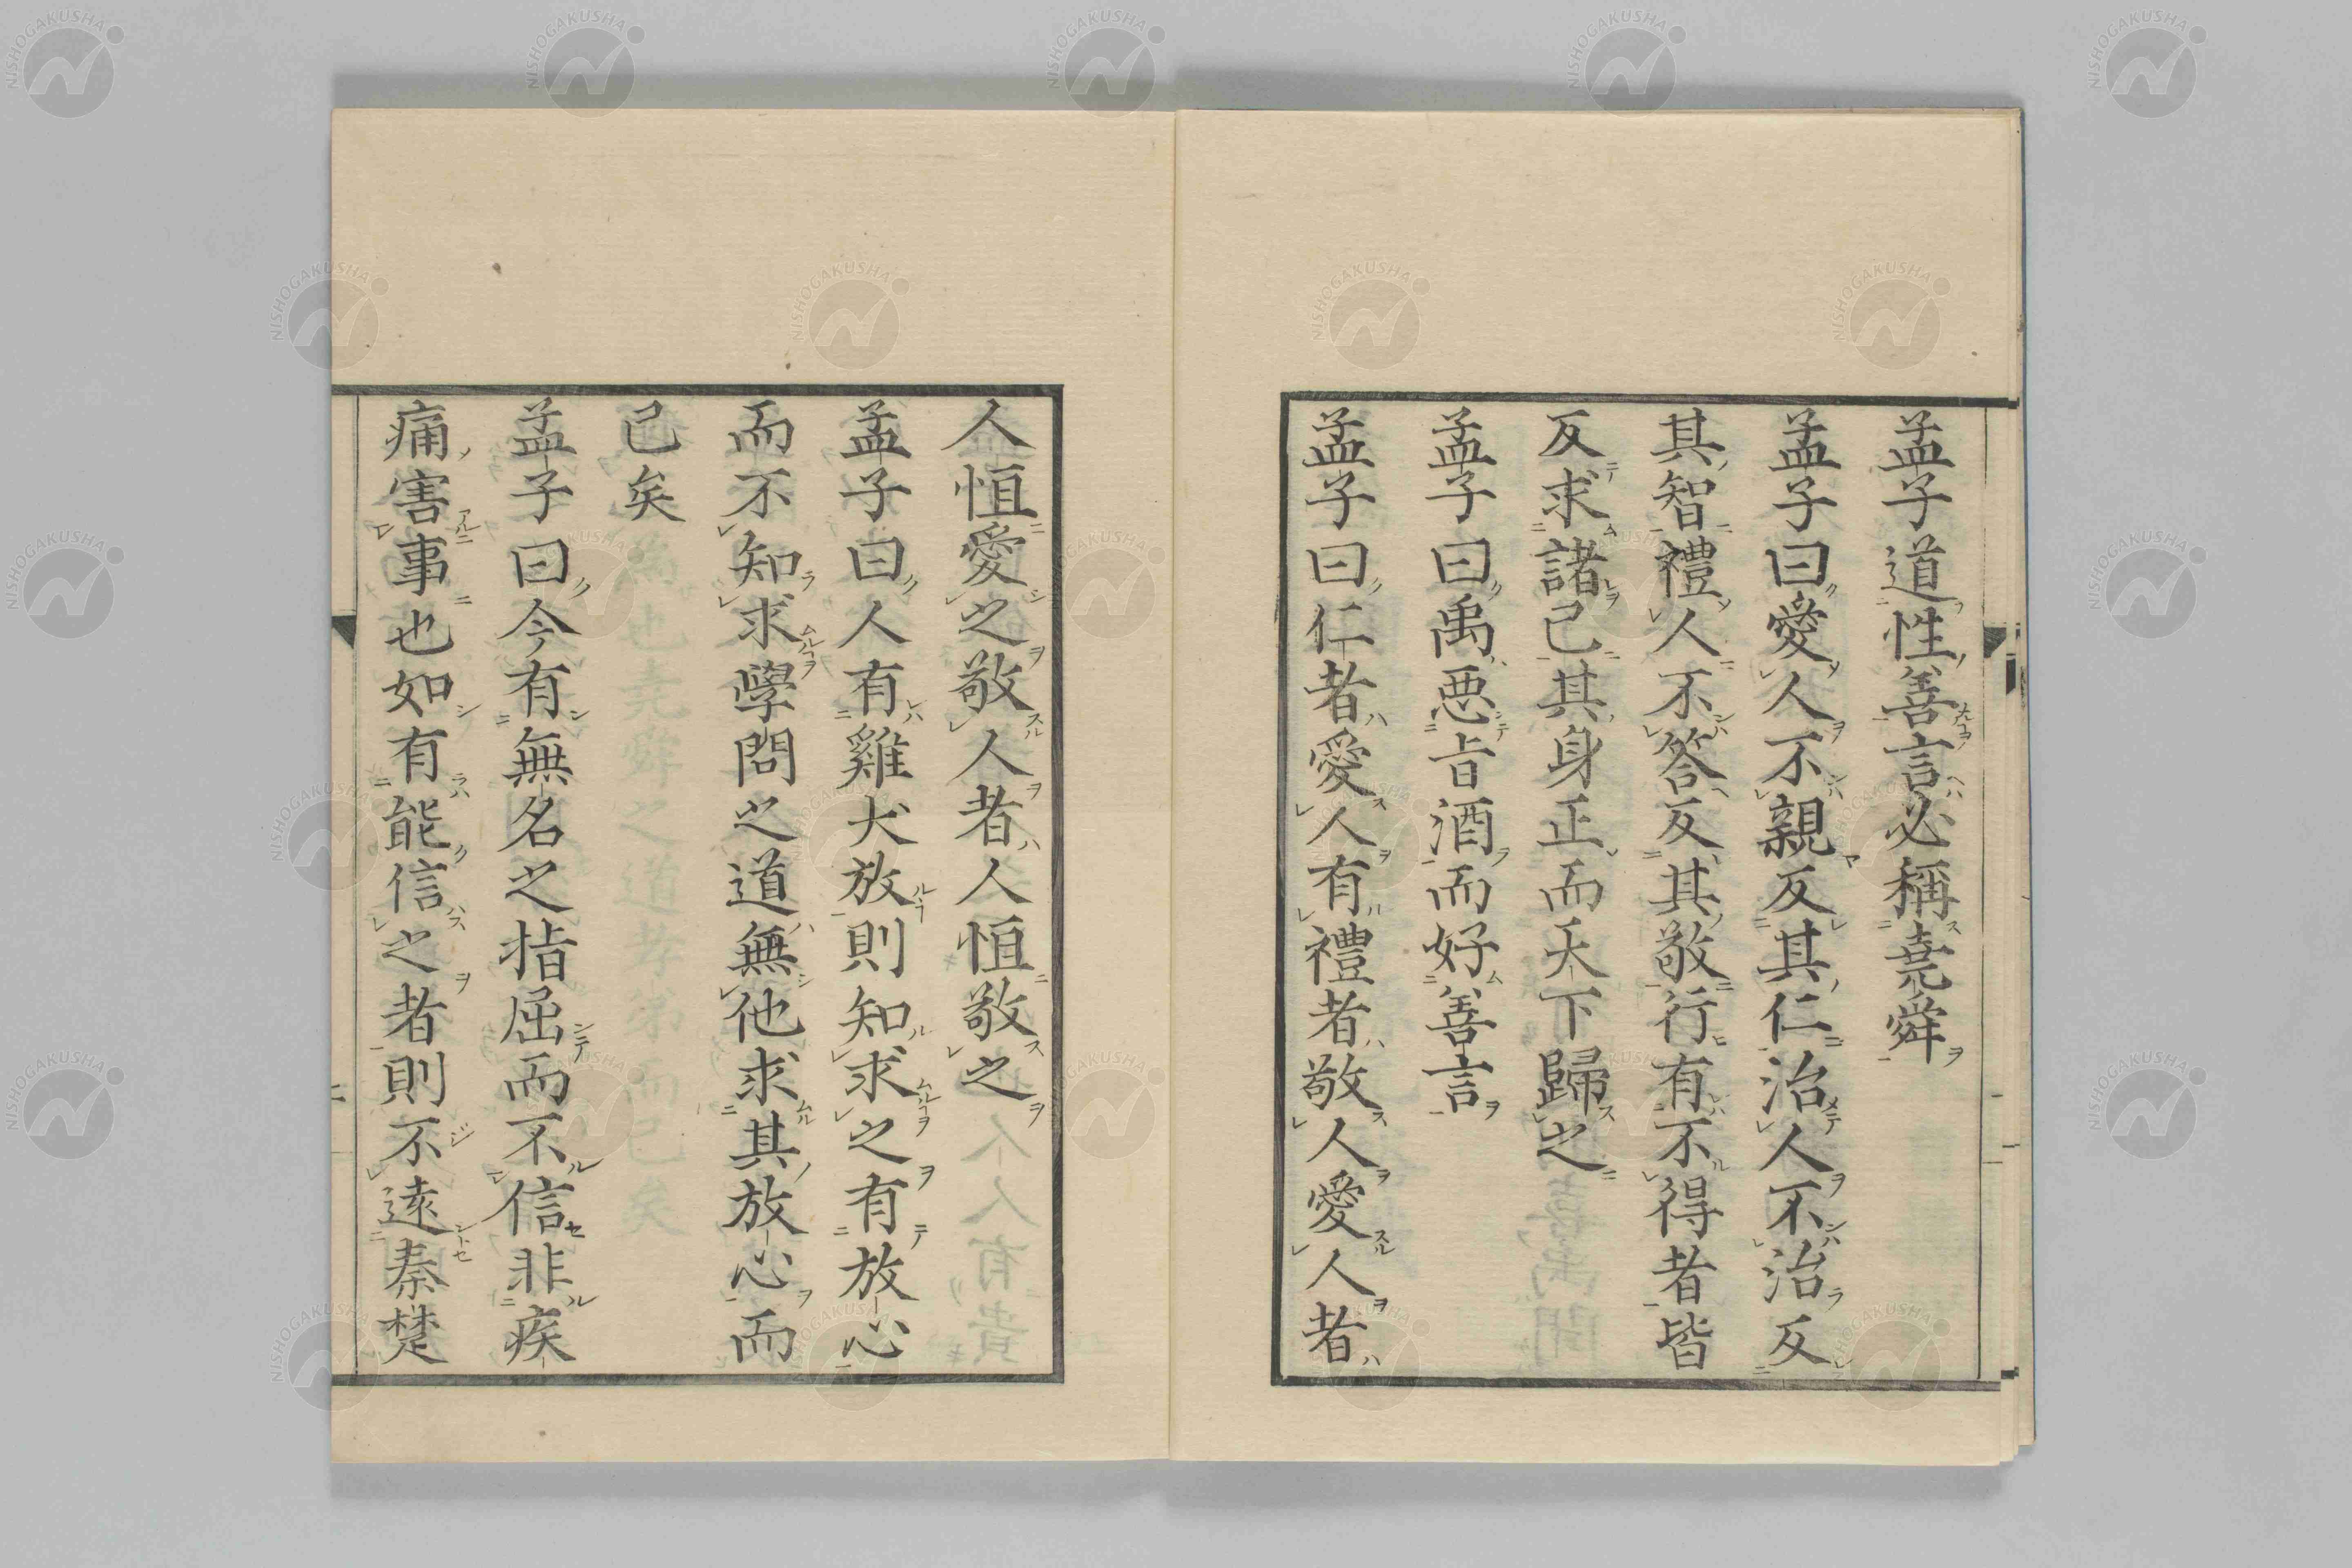 孟子道性善言必稱堯舜
孟子曰愛人不親反其仁治人不治反
其智禮人不答反其敬行有不得者皆
反求諸己其身正而天下歸之
孟子曰禹惡旨酒而好善言
孟子曰仁者愛人有禮者敬人愛人者
人恒愛之敬人者人恒敬之
孟子曰人有雞犬放則知求之有放心
而不知求學問之道無他求其放心而
已矣
孟子曰今有無名之指屈而不信非疾
痛害事也如有能信之者則不遠秦楚
NISHOGAKUSHA